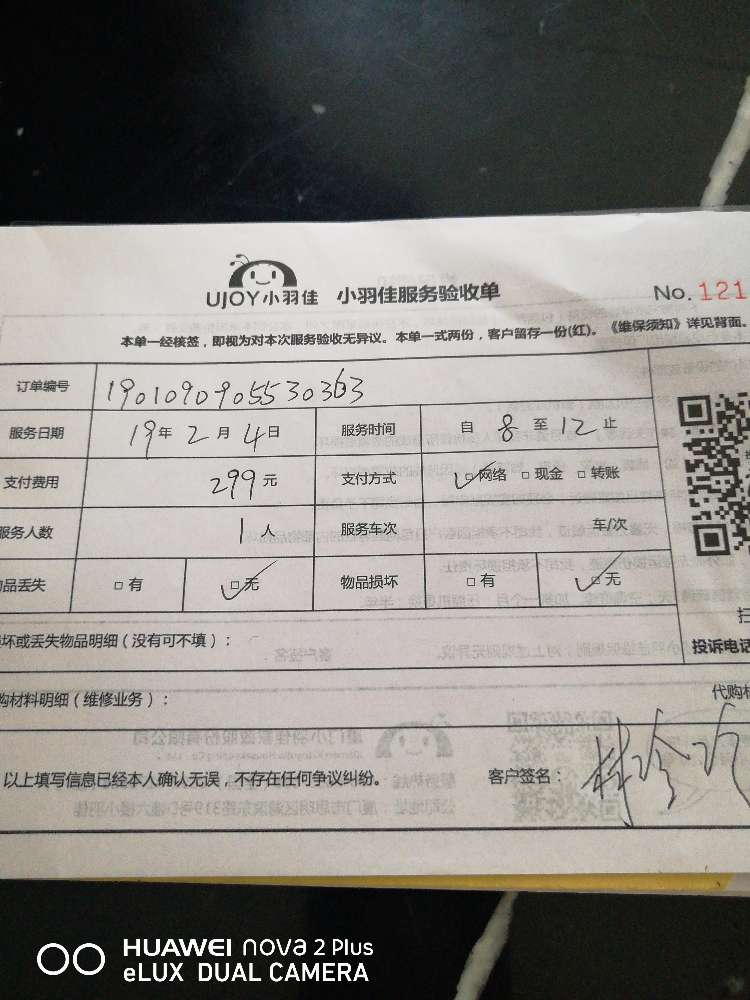 UJOY小羽佳 小羽佳服务验收单 No. 121
本单一经核签，即视为对本次服务验收无异议。本单一式两份，客户留存一份(红)。《维保须知》详见背面。
订单编号 1901090905530363
服务日期 19年2月4日 服务时间 自8至12止
支付费用 299元 支付方式 ☑网络 □现金 □转账
服务人数 1人 服务车次 车/次
品丢失 □有 ☑无 物品损坏 □有 ☑无
坏或丢失物品明细（没有可不填）：
投诉电话
购材料明细（维修业务）： 代购材
以上填写信息已经本人确认无误，不存在任何争议纠纷。 客户签名：
HUAWEI nova 2 Plus
eLUX DUAL CAMERA